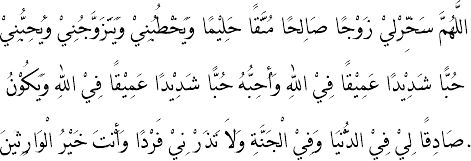 اَللَّهُمَّ سَخِّرْلِيْ زَوْجًا صَالِحًا مُتَّقًا حَلِيْمًا وَيَخْطُبُنِيْ وَيَتَزَوَّجُنِيْ وَيُحِبُّنِيْ
حُبًّا شَدِيْدًا عَمِيْقًا فِيْ اللهِ وَأُحِبُّهُ حُبًّا شَدِيْدًا عَمِيْقًا فِيْ اللهِ وَيَكُوْنُ
صَادِقًا لِيْ فِيْ الدُّنْيَا وَفِيْ الْجَنَّةِ وَلاَ تَذَرْنِيْ فَرْدًا وَأَنْتَ خَيْرُ الْوَارِثِيْنَ.